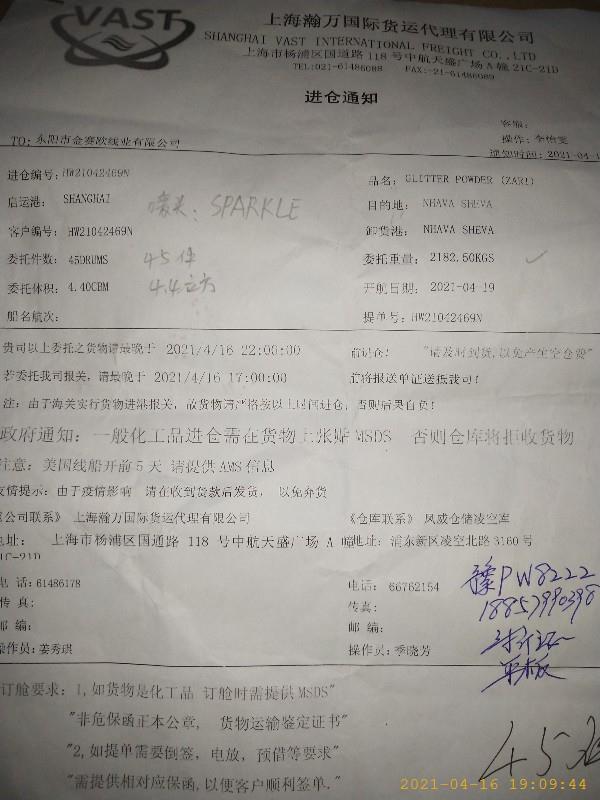 VAST
上海瀚万国际货运代理有限公司
SHANGHAI VAST INTERNATIONAL FREIGHT CO.,LTD
上海市杨浦区国通路 118 号中航天盛广场 A 幢 21C-21D
TEL:021-61486088 FAX:-21-61486089
进仓通知
客服:
TO: 东阳市金赛欧线业有限公司
操作: 李怡雯
通知时间: 2021-04-1
进仓编号: HW21042469N
品名: GLITTER POWDER (ZARI)
启运港: SHANGHAI
唛头: SPARKLE
目的地: NHAVA SHEVA
客户编号: HW21042469N
卸货港: NHAVA SHEVA
委托件数: 45DRUMS
45件
委托重量: 2182.50KGS
委托体积: 4.40CBM
4.4立方
开航日期: 2021-04-19
船名航次:
提单号: HW21042469N
贵司以上委托之货物请最晚于 2021/4/16 22:00:00 前进仓! "请及时到货,以免产生空仓费"
若委托我司报关, 请最晚于 2021/4/16 17:00:00 前将报送单证送抵我司!
注: 由于海关实行货物进港报关, 故货物请严格按以上时间进仓, 否则后果自负!
政府通知: 一般化工品进仓需在货物上张贴MSDS 否则仓库将拒收货物
注意: 美国线船开前5天 请提供AMS信息
疫情提示: 由于疫情影响 请在收到货款后发货, 以免弃货
《公司联系》 上海瀚万国际货运代理有限公司
《仓库联系》 风威仓储凌空库
地址: 上海市杨浦区国通路 118 号中航天盛广场 A 幢
21C-21D
地址: 浦东新区凌空北路3160号
电 话: 61486178
电话: 66762154
豫PW8222
传 真:
传真:
18857990398
邮 编:
邮 编:
操作员: 姜秀琪
操作员: 季晓芳
订舱要求: 1,如货物是化工品 订舱时需提供MSDS"
"非危保函正本公章, 货物运输鉴定证书"
"2,如提单需要倒签, 电放, 预借等要求"
"需提供相对应保函,以便客户顺利签单."
2021-04-16 19:09:44